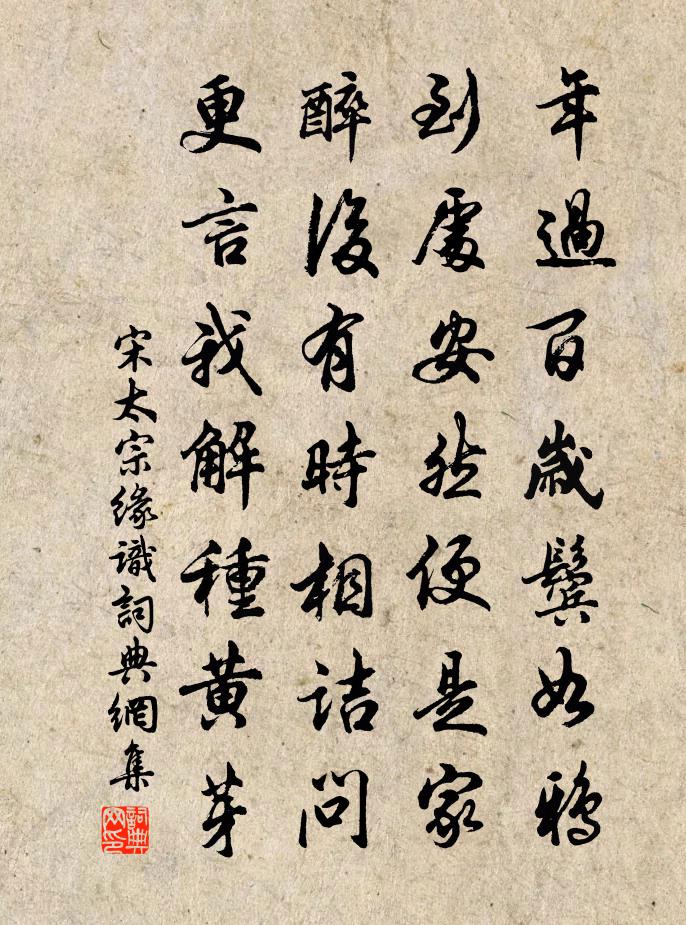 年過百歲鬢如鴉
到處安然便是家
醉後有時相詰問
更言我解種黃芽
宋太宗緣識詞典網集
詞典網印